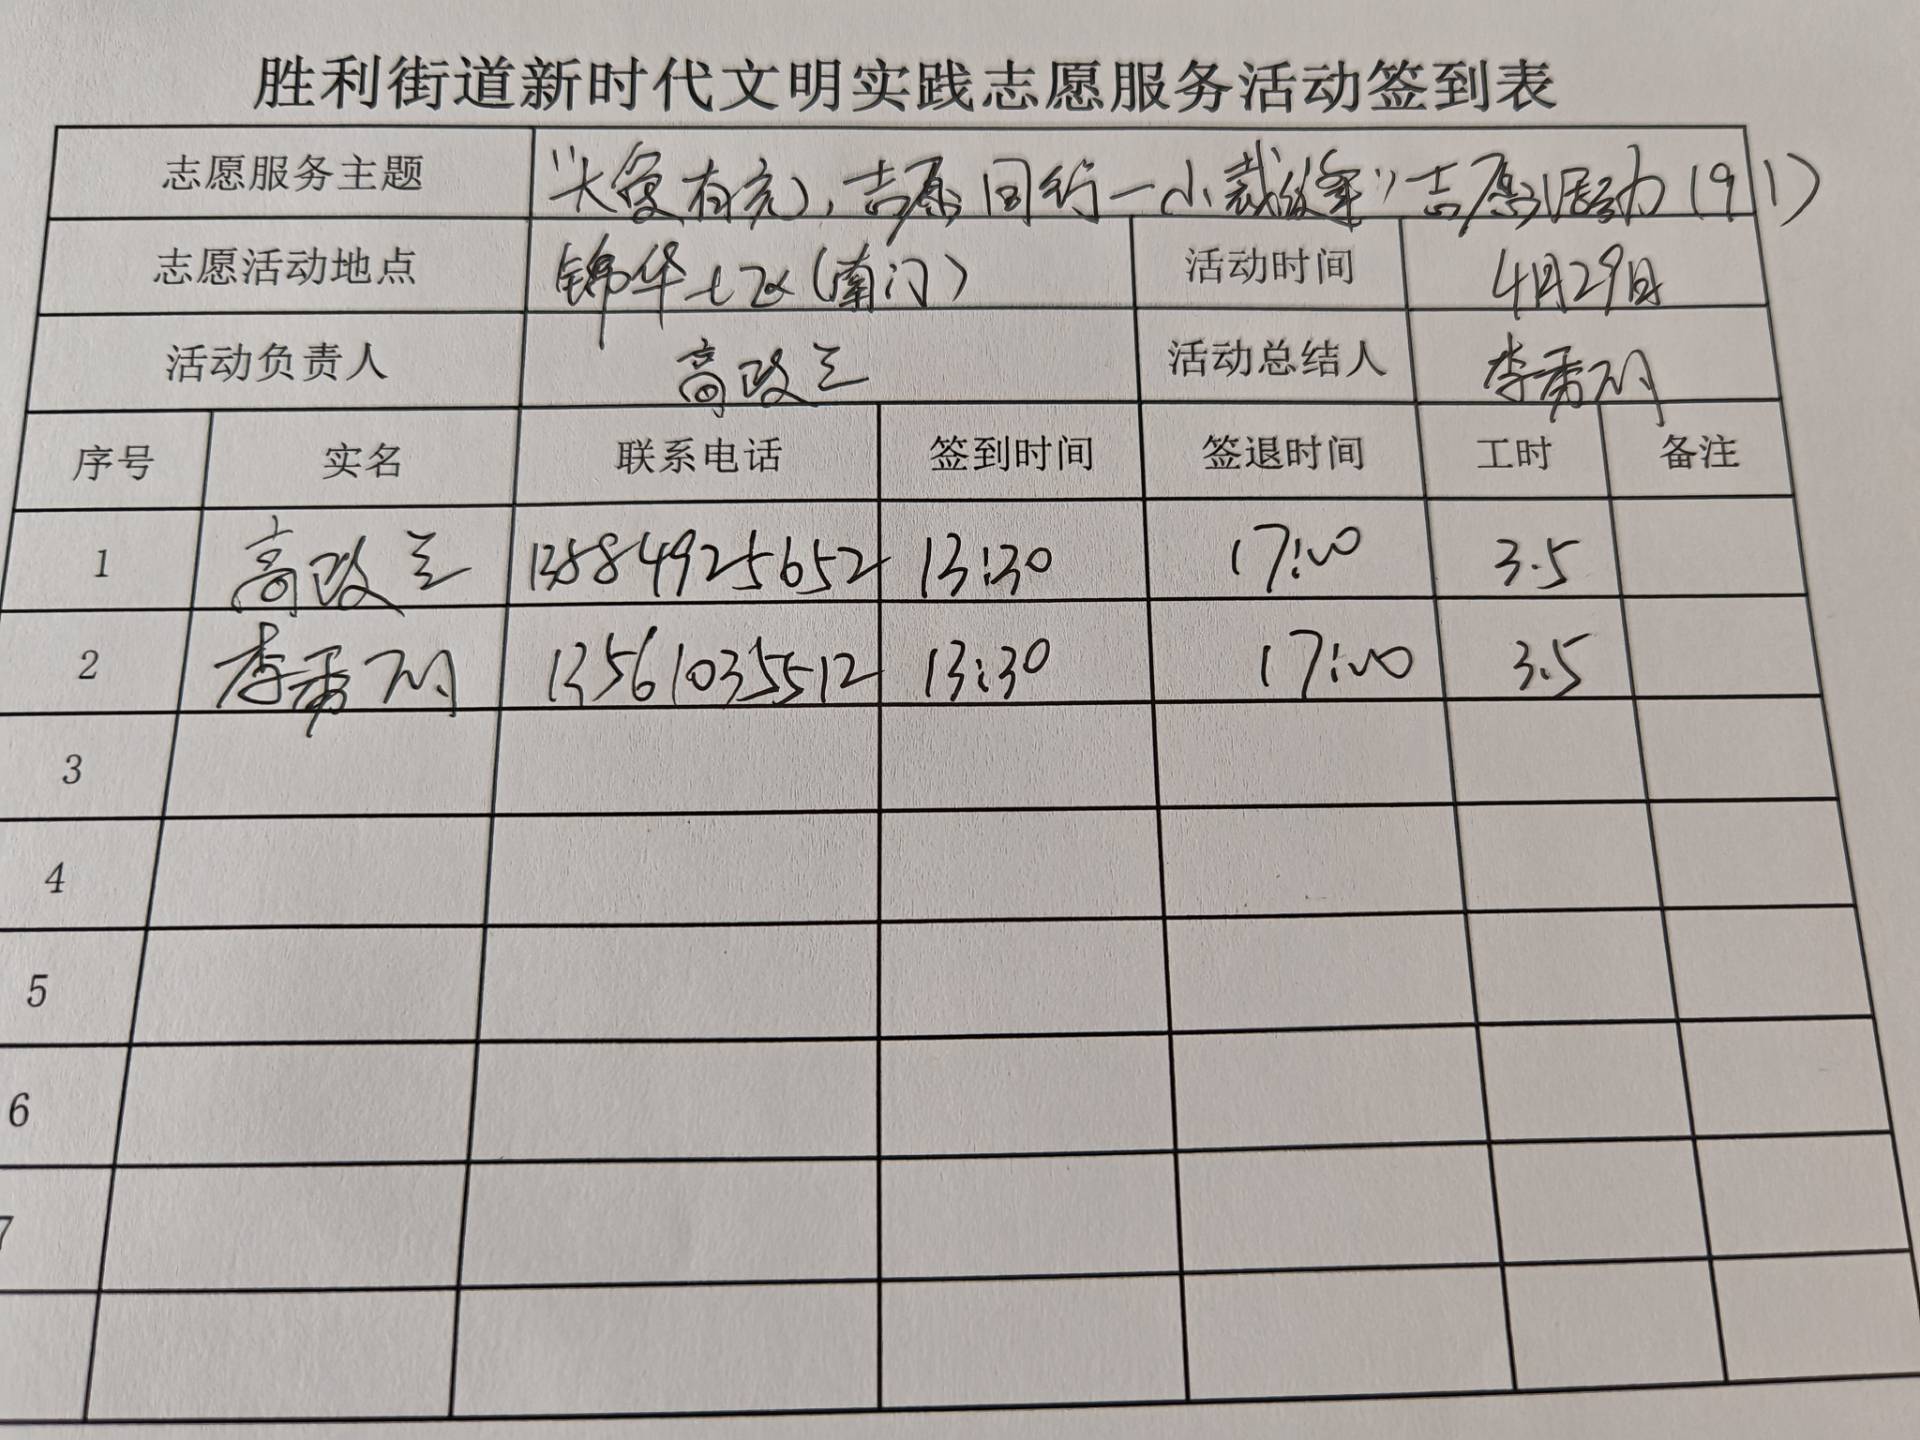 胜利街道新时代文明实践志愿服务活动签到表
志愿服务主题 "大爱有充，志愿同行一小裁缝"志愿活动(91)
志愿活动地点 锦华七区(南门) 活动时间 4月29日
活动负责人 高政兰 活动总结人 李秀
序号 实名 联系电话 签到时间 签退时间 工时 备注
1 高政兰 13584925652 13:30 17:00 3.5
2 李秀 13561035512 13:30 17:00 3.5
3
4
5
6
7